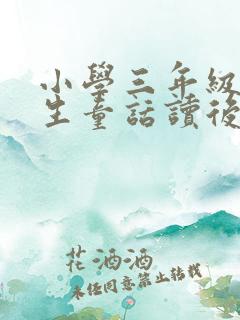 小學三年級
生童話讀後
花酒酒
未经同意禁止转载